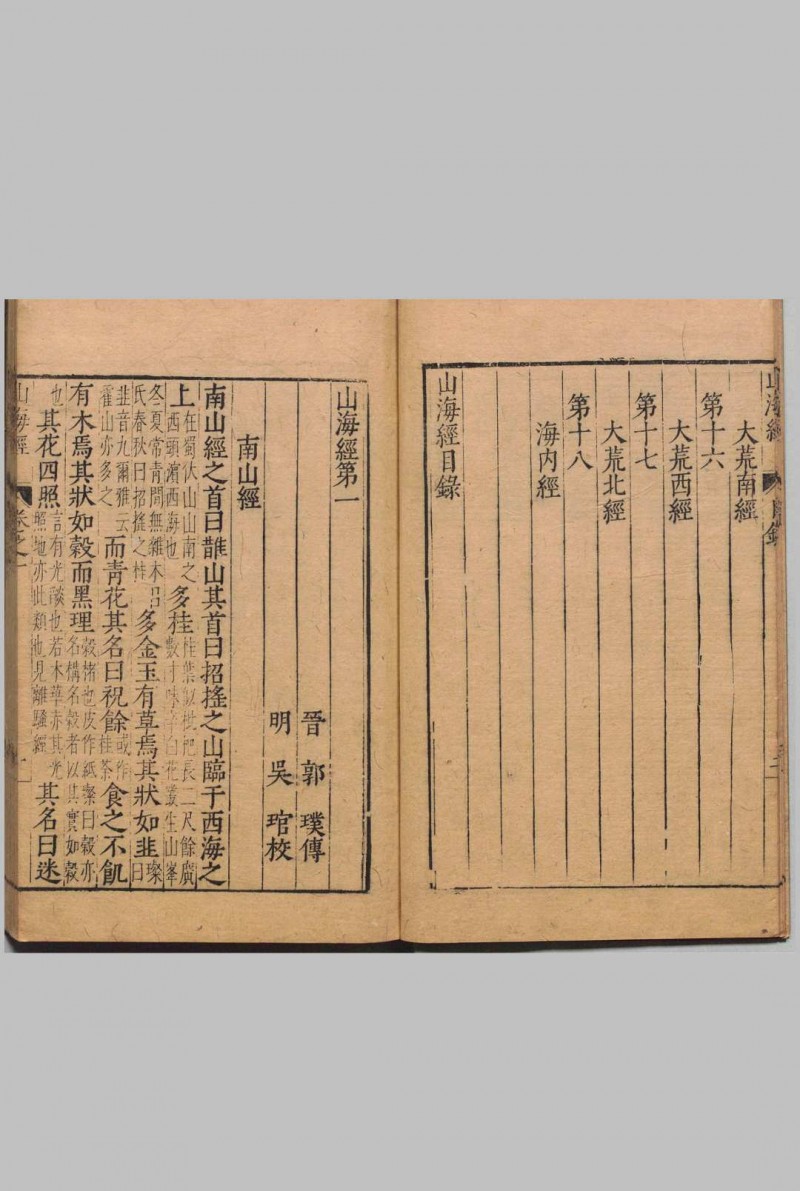 山海經 目錄 二
大荒南經
第十六
大荒西經
第十七
大荒北經
第十八
海内經
山海經目錄
山海經第一
晉 郭 璞傳
明 吳 琯校
南山經
南山經之首曰䧿山其首曰招搖之山臨于西海之
上在蜀伏山山南之西頭濱西海也多桂桂葉似枇杷長二尺餘廣數寸味辛白花叢生山峯
冬夏常青間無雜木吕氏春秋曰招搖之桂多金玉有草焉其狀如韭璨曰
韭音九爾雅云霍山亦多之而青花其名曰祝餘或作桂荼食之不飢
有木焉其狀如榖而黑理榖楮也皮作紙璨曰榖亦名構名榖者以其實如榖
也其花四照言有光燄也若木華亦其光照地亦此類也見離騷經其名曰迷
山海經 卷之一